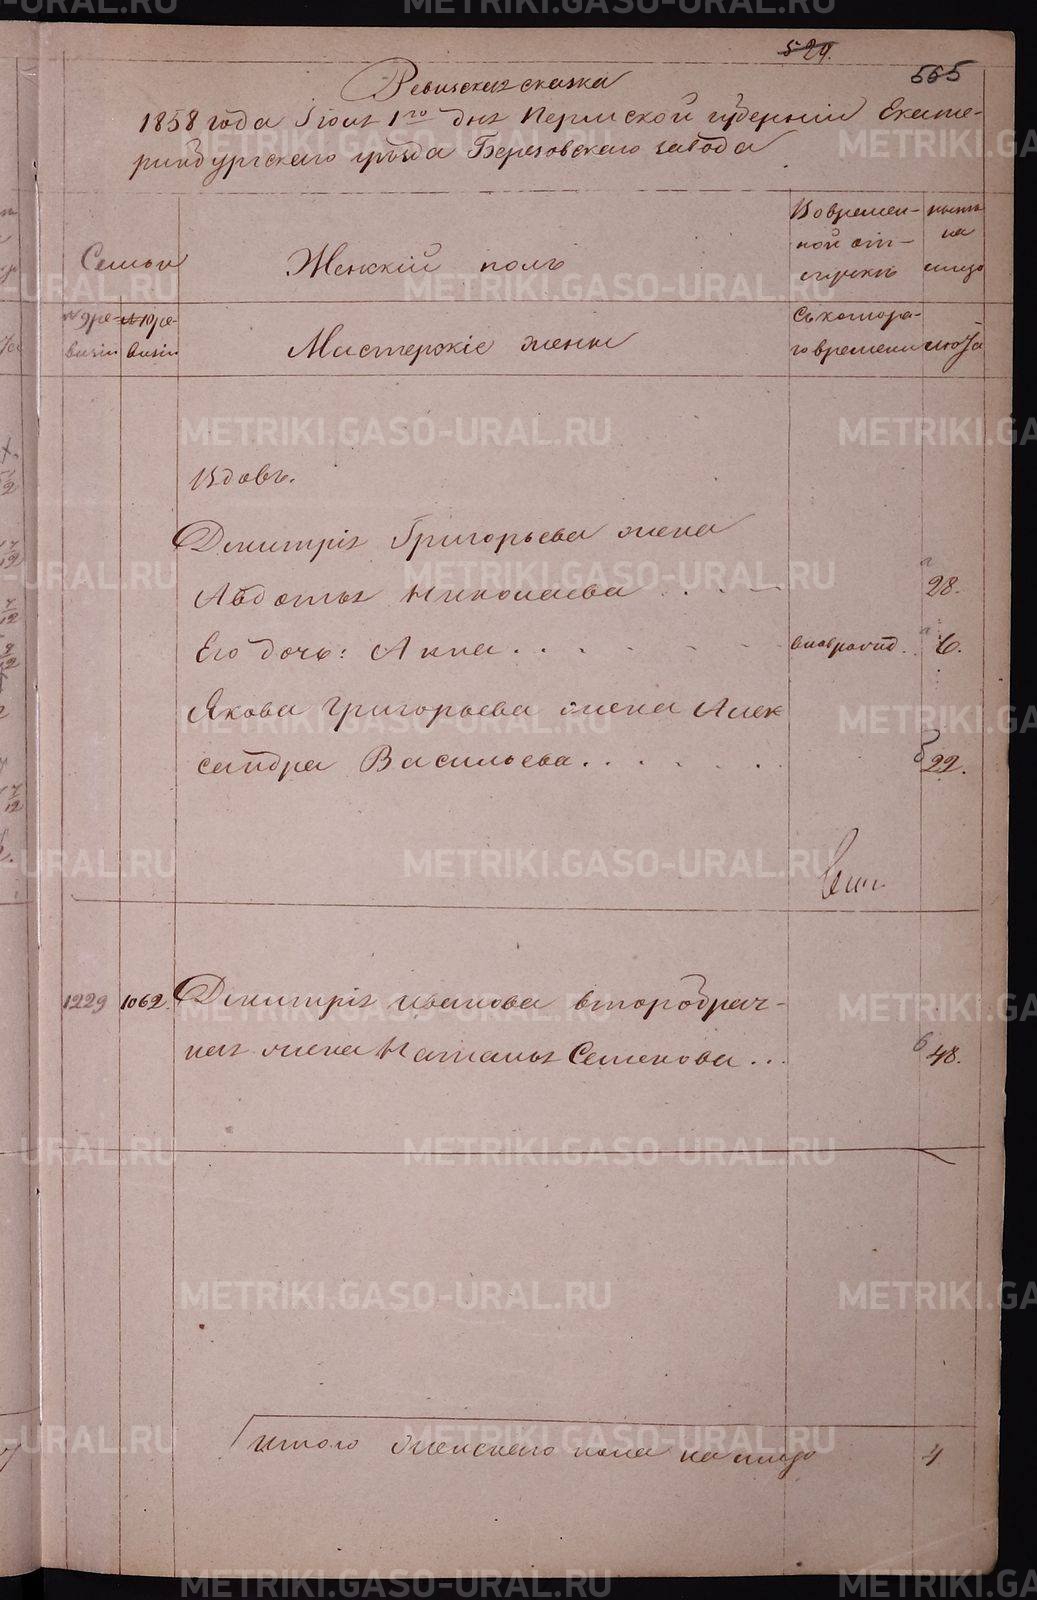 529.
565
Ревизская сказка
1858 года Iюня 1го дня Пермской губернiи Екате-
ринбургскаго уѣзда Березовскаго завода
Семьи
Женскiй полъ
Во времен-
ной от-
лучкѣ
нынѣ
на
лицо
№ 9 ре-
визiи
№ 10 ре-
визiи
Мастерскiе жены
Съ котора-
го времени
лѣта
Вдовъ.
Димитрiя Григорьева жена
Авдотья Николаева . . . - 28.
Его дочь: Анна . . . . - - 6.
Якова Григорьева жена Алек
сандра Васильева . . . . . . . 22.
1229 1062 Димитрiя Иванова второбрач-
ная жена Наталья Семенова . . . 48.
Итого женскаго пола на лицо 4
METRIKI.GASO-URAL.RU